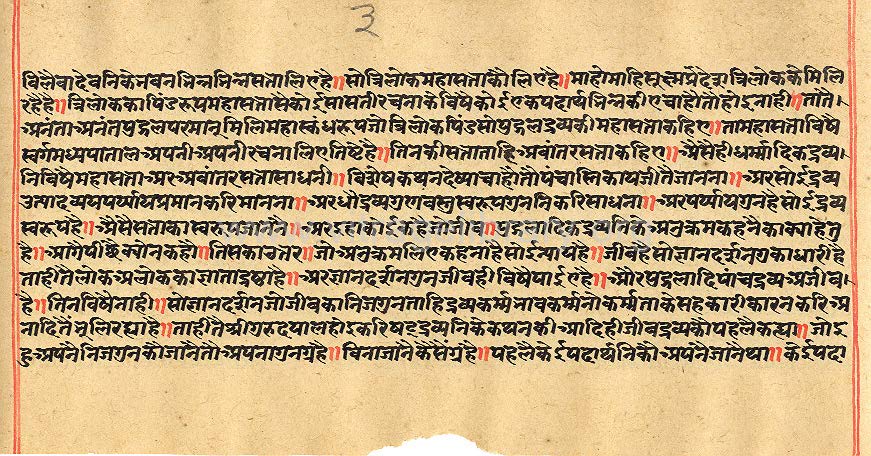 ३
बिलैवादेवनिकेनवनभिन्नभिन्नसतालिएहै॥सोत्रिलोकमहासताकौंलिएहै॥माहोमाहिसूक्ष्मप्रदेशत्रिलोककैमिलि
रहेहै॥त्रिलोककापिंडरूपमहासतासकोईसासतीरचनाकेविषैकोईएकपदार्थभिन्नकीएचाहौतौहोइनाही॥तातै।
अनंताअनंतपुद्गलपरमानूमिलिमहास्कंधरूपजोत्रिलोकपिंडसोपुद्गलद्रव्यकीमहासताकहिए॥तामहासताविषै
स्वर्गमध्यपातालअपनीअपनीरचनालिएतिष्टैहै॥तिनकीसताताहिअवांतरसताकहिए॥औसैहीधर्म्मादिकद्रव्य।
निविषैमहासताअरअवांतरसतासाधनी॥विशेषकथनदेष्याचाहौतौपंचास्तिकायजीतैजानना॥अरसोईद्रव्य
उत्पादव्ययपर्य्यायप्रमानकरिमानना॥अरध्रौव्यद्रव्यगुणवस्तुस्वरूपगुननिकरिसाधना॥अरपर्य्यायगुनहैसोईद्रव्य
स्वरूपहै॥औसैसताकास्वरूपजाननै॥अरइहाकोईकहैजोजीव।पुद्गलादिकद्रव्यतिकेअनुक्रमकहनैकाक्याहेतु
है॥आगैपीछैक्योनकहौ॥तिसकाउतर॥जोअनुक्रमलिएकहनाहैसोईन्यायहै॥जीवहैसोज्ञानदर्शनगुनकाधारीहै
ताहीतैलोकअलोककाज्ञाताद्रष्टाहै॥अरज्ञानदर्शनगुनजीवहीविषैपाईएहै॥औरपुद्गलादिपांचद्रव्यअजीव।
है॥तिनविषैनाही।सोज्ञानदर्शनजोजीवकानिजगुनताहिद्रव्यकर्म्मभावकर्म्मनोकर्म्मताकेसहकारीकारनकरिअ
नादितैंभूलिरह्याहै॥ताहीतैश्रीगुरुदयालहोइकरिषट्द्रव्यनिकेकथनकीआदिहीजीवद्रव्यकौपहलैकह्या॥जोइ
हुअपनैनिजगुनकौजानैतौअपनागुनग्रहै॥विनाजानैकैसैंग्रहै॥पहलैकेईपदार्थनिकौअपनैजानैथा॥केईपदा